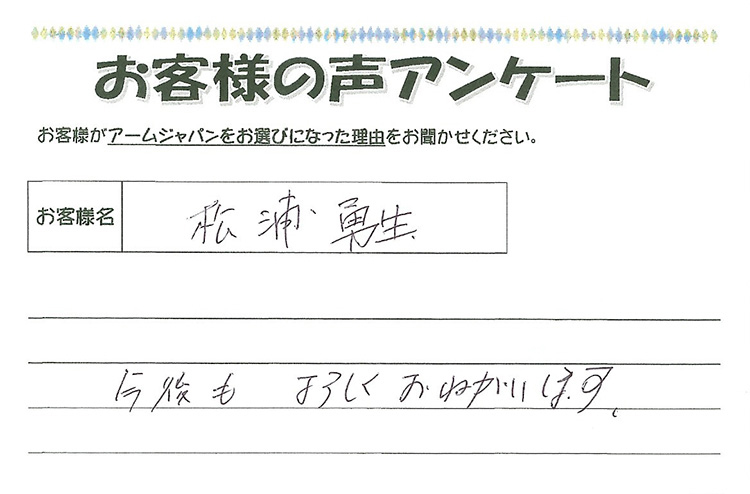 お客様の声アンケート
お客様がアームジャパンをお選びになった理由をお聞かせください。
お客様名
松浦勇生
今後も よろしく おねがいします。